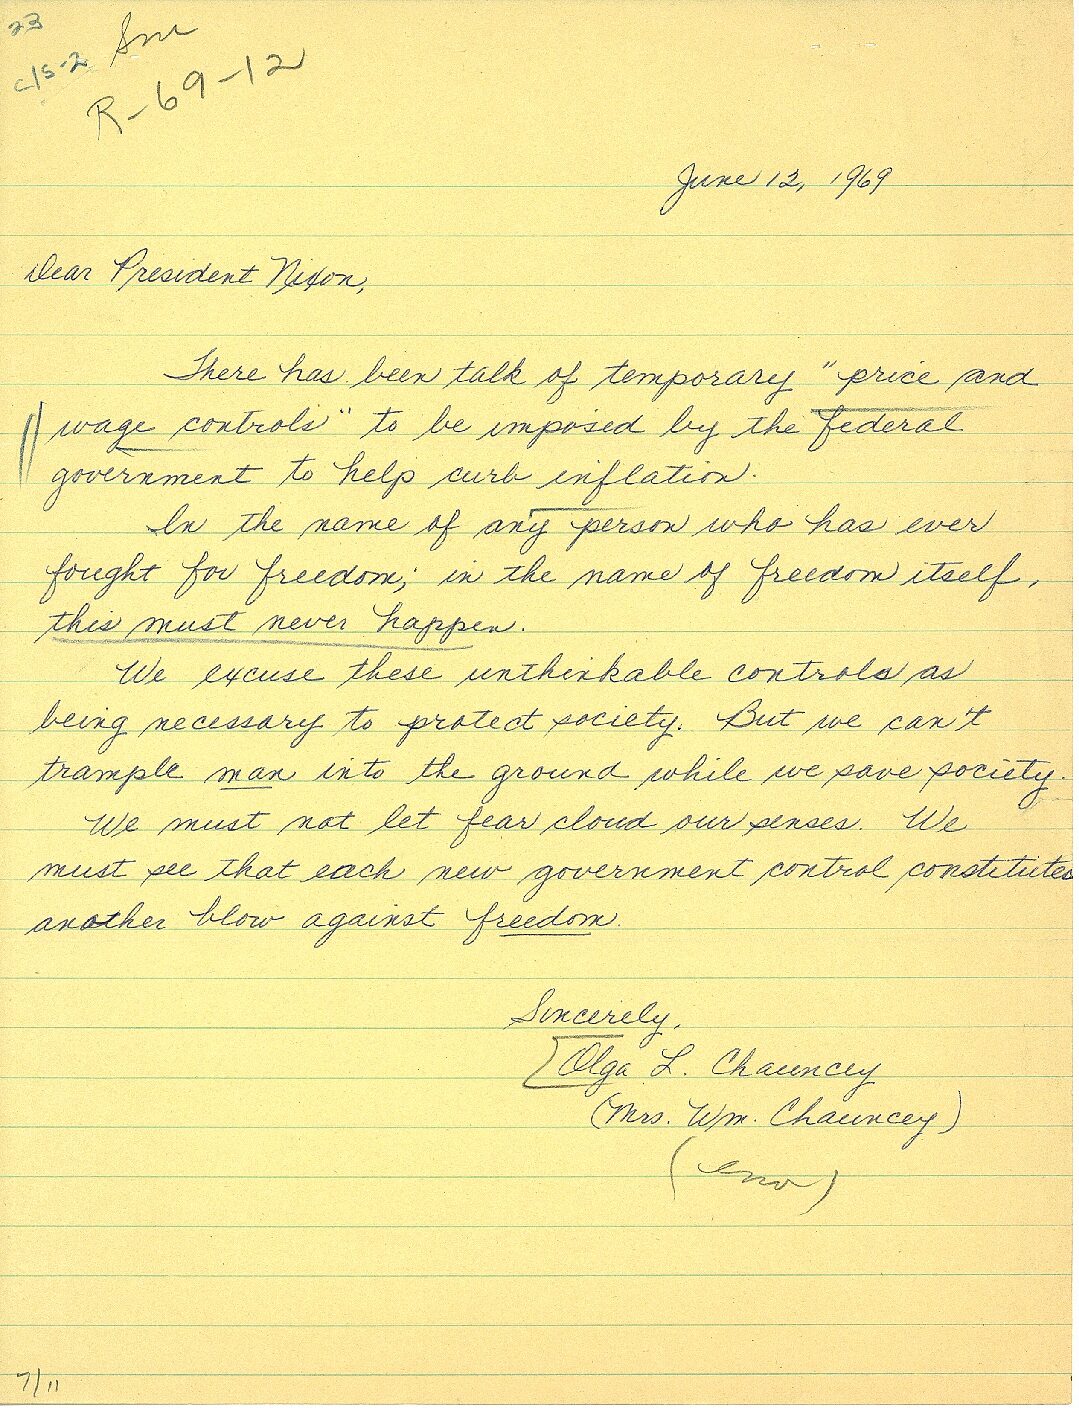 23
c/s-2
R-69-12
June 12, 1969
Dear President Nixon,
There has been talk of temporary "price and
wage controls" to be imposed by the federal
government to help curb inflation.
In the name of any person who has ever
fought for freedom; in the name of freedom itself,
this must never happen.
We excuse these unthinkable controls as
being necessary to protect society. But we can't
trample man into the ground while we save society.
We must not let fear cloud our senses. We
must see that each new government control constitutes
another blow against freedom.
Sincerely,
Olga L. Chauncey
(Mrs. Wm. Chauncey)
7/11